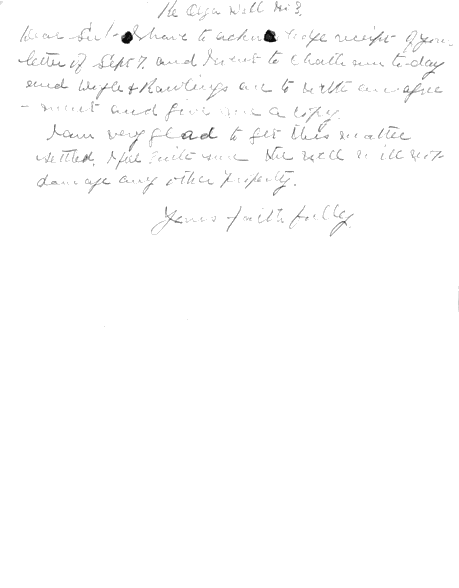 Re Orga Well No 3.
Dear Sir:- I have to acknowledge receipt of your
letter of Sept 7. and I went to Chatham to-day
and & Rawlings are to write an agree
- ment and give me a copy.
I am very glad to get this matter
settled, I feel quite sure the well will not
damage any other property.
Yours faithfully